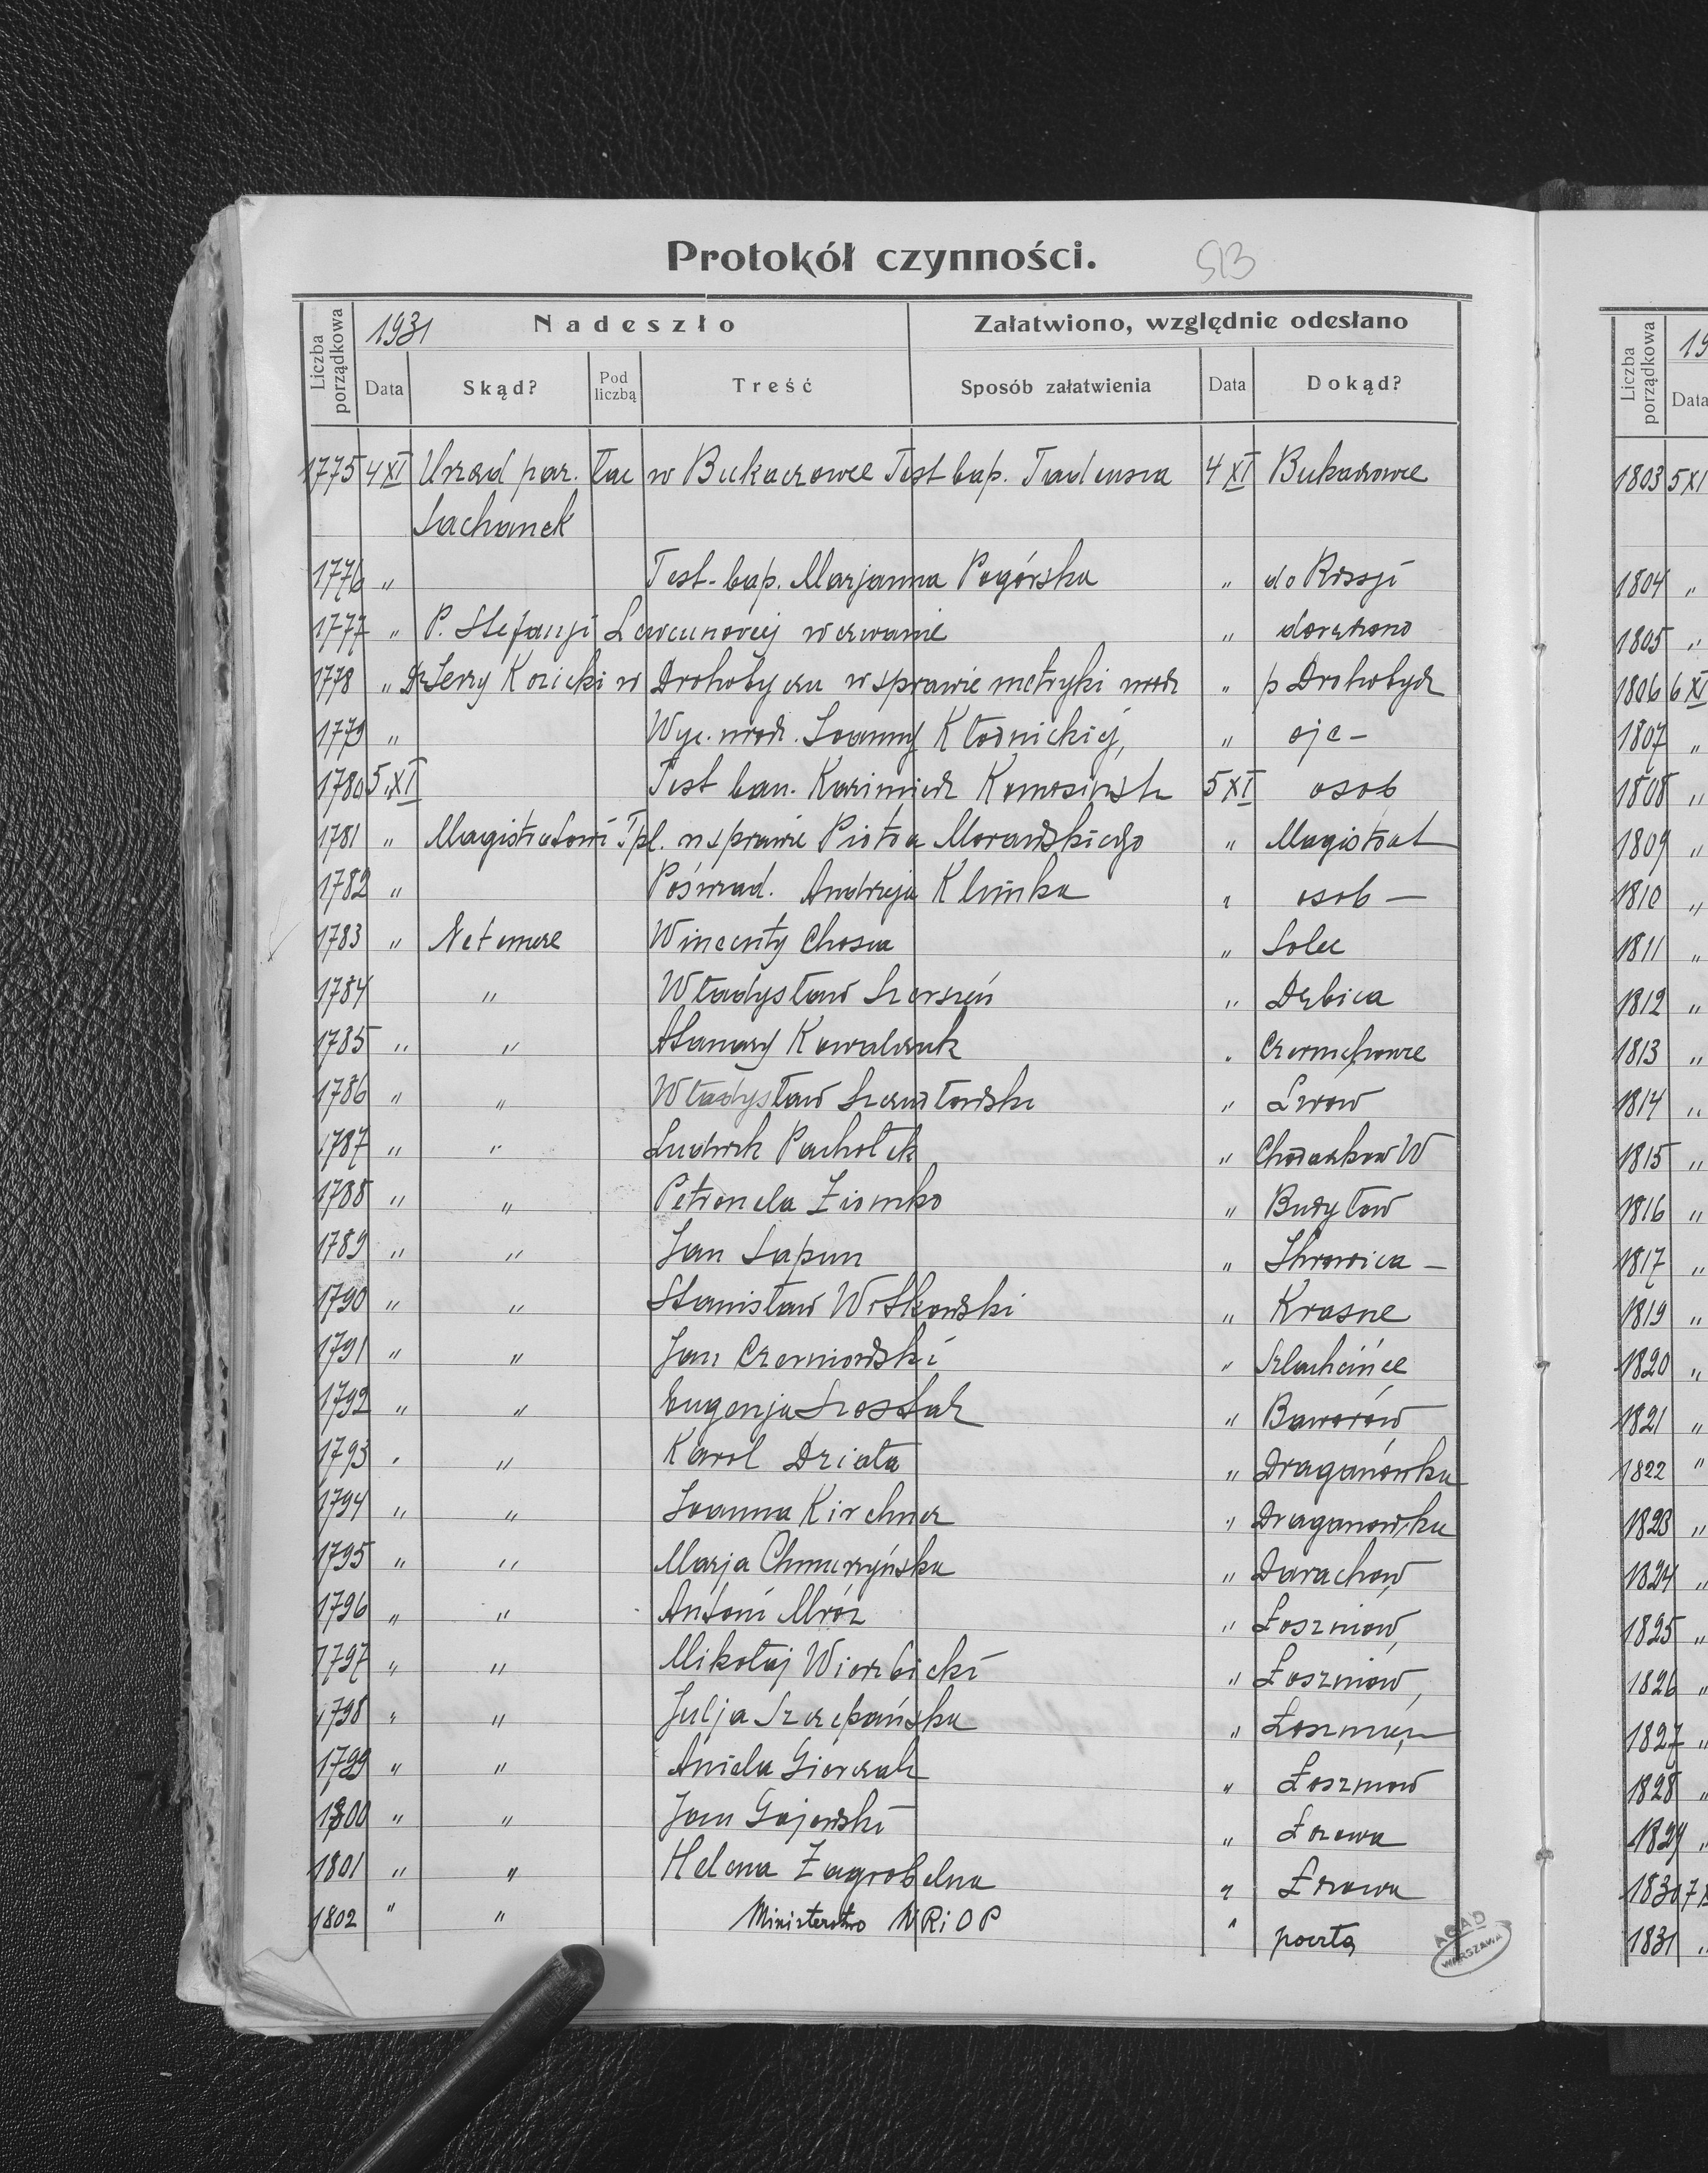 Protokół czynności. 513
Liczba porządkowa 1931 Nadeszło Załatwiono, względnie odesłano
Data Skąd? Pod liczbą Treść Sposób załatwienia Data Dokąd?
1775 4 XI Urząd par. łac w Bukaczowce Test bap. Tadeusza 4 XI Bukaczowce
Lachanek
1776 " Test. bap. Marjanna Pogórska " do Rossji
1777 " P. Stefanji wezwanie " doręczono
1778 " Dr Jerzy Kozicki w Drohobyczu w sprawie metryki urodz " p Drohobycz
1779 " Wyc. urodz. Joanny Kłodnickiej, " ojc –
1780 5 XI Test ban. Kazimierz 5 XI osob
1781 " Magistratowi Tpl. w sprawie Piotra Morawskiego " Magistrat
1782 " Poświad. Andrzeja Klimka " osob –
1783 " Ne temere Wincenty " Solec
1784 " Władysław Szerszeń " Dębica
1785 " " Atanazy Kowalczuk " Czernichowce
1786 " " Władysław " Lwów
1787 " " Ludwik Pachołek " Chodaczków W
1788 " " Petronela Ziomko " Budyłów
1789 " " Jan Sapun " Ihrowica –
1790 " " Stanisław Witkowski " Krasne
1791 " " Jan Czerniowski " Szlachcińce
1792 " " Eugenja Szostak " Baworów
1793 " " Karol Działa " Draganówka
1794 " " Joanna Kirchner " Draganówka
1795 " " Marja Chmurzyńska " Darachow
1796 " " Antoni Mróz " Łoszniów
1797 " " Mikołaj Wierzbicki " Łoszniów
1798 " " Julja Szczepańska " Łoszniów
1799 " " Aniela Gierczak " Łoszniow
1800 " " Jan Gajewski " Łozowa
1801 " " Helena Zagrobelna " Łozowa
1802 " " Ministerstwo WRiOP " pocztą
AGAD
WARSZAWA
Liczba porządkowa 19
Data
1803 5 XI
1804 "
1805 "
1806 6 XI
1807 "
1808 "
1809 "
1810 "
1811 "
1812 "
1813 "
1814 "
1815 "
1816 "
1817 "
1819 "
1820 "
1821 "
1822 "
1823 "
1824 "
1825 "
1826 "
1827 "
1828 "
1829 "
1830 7
1831 "